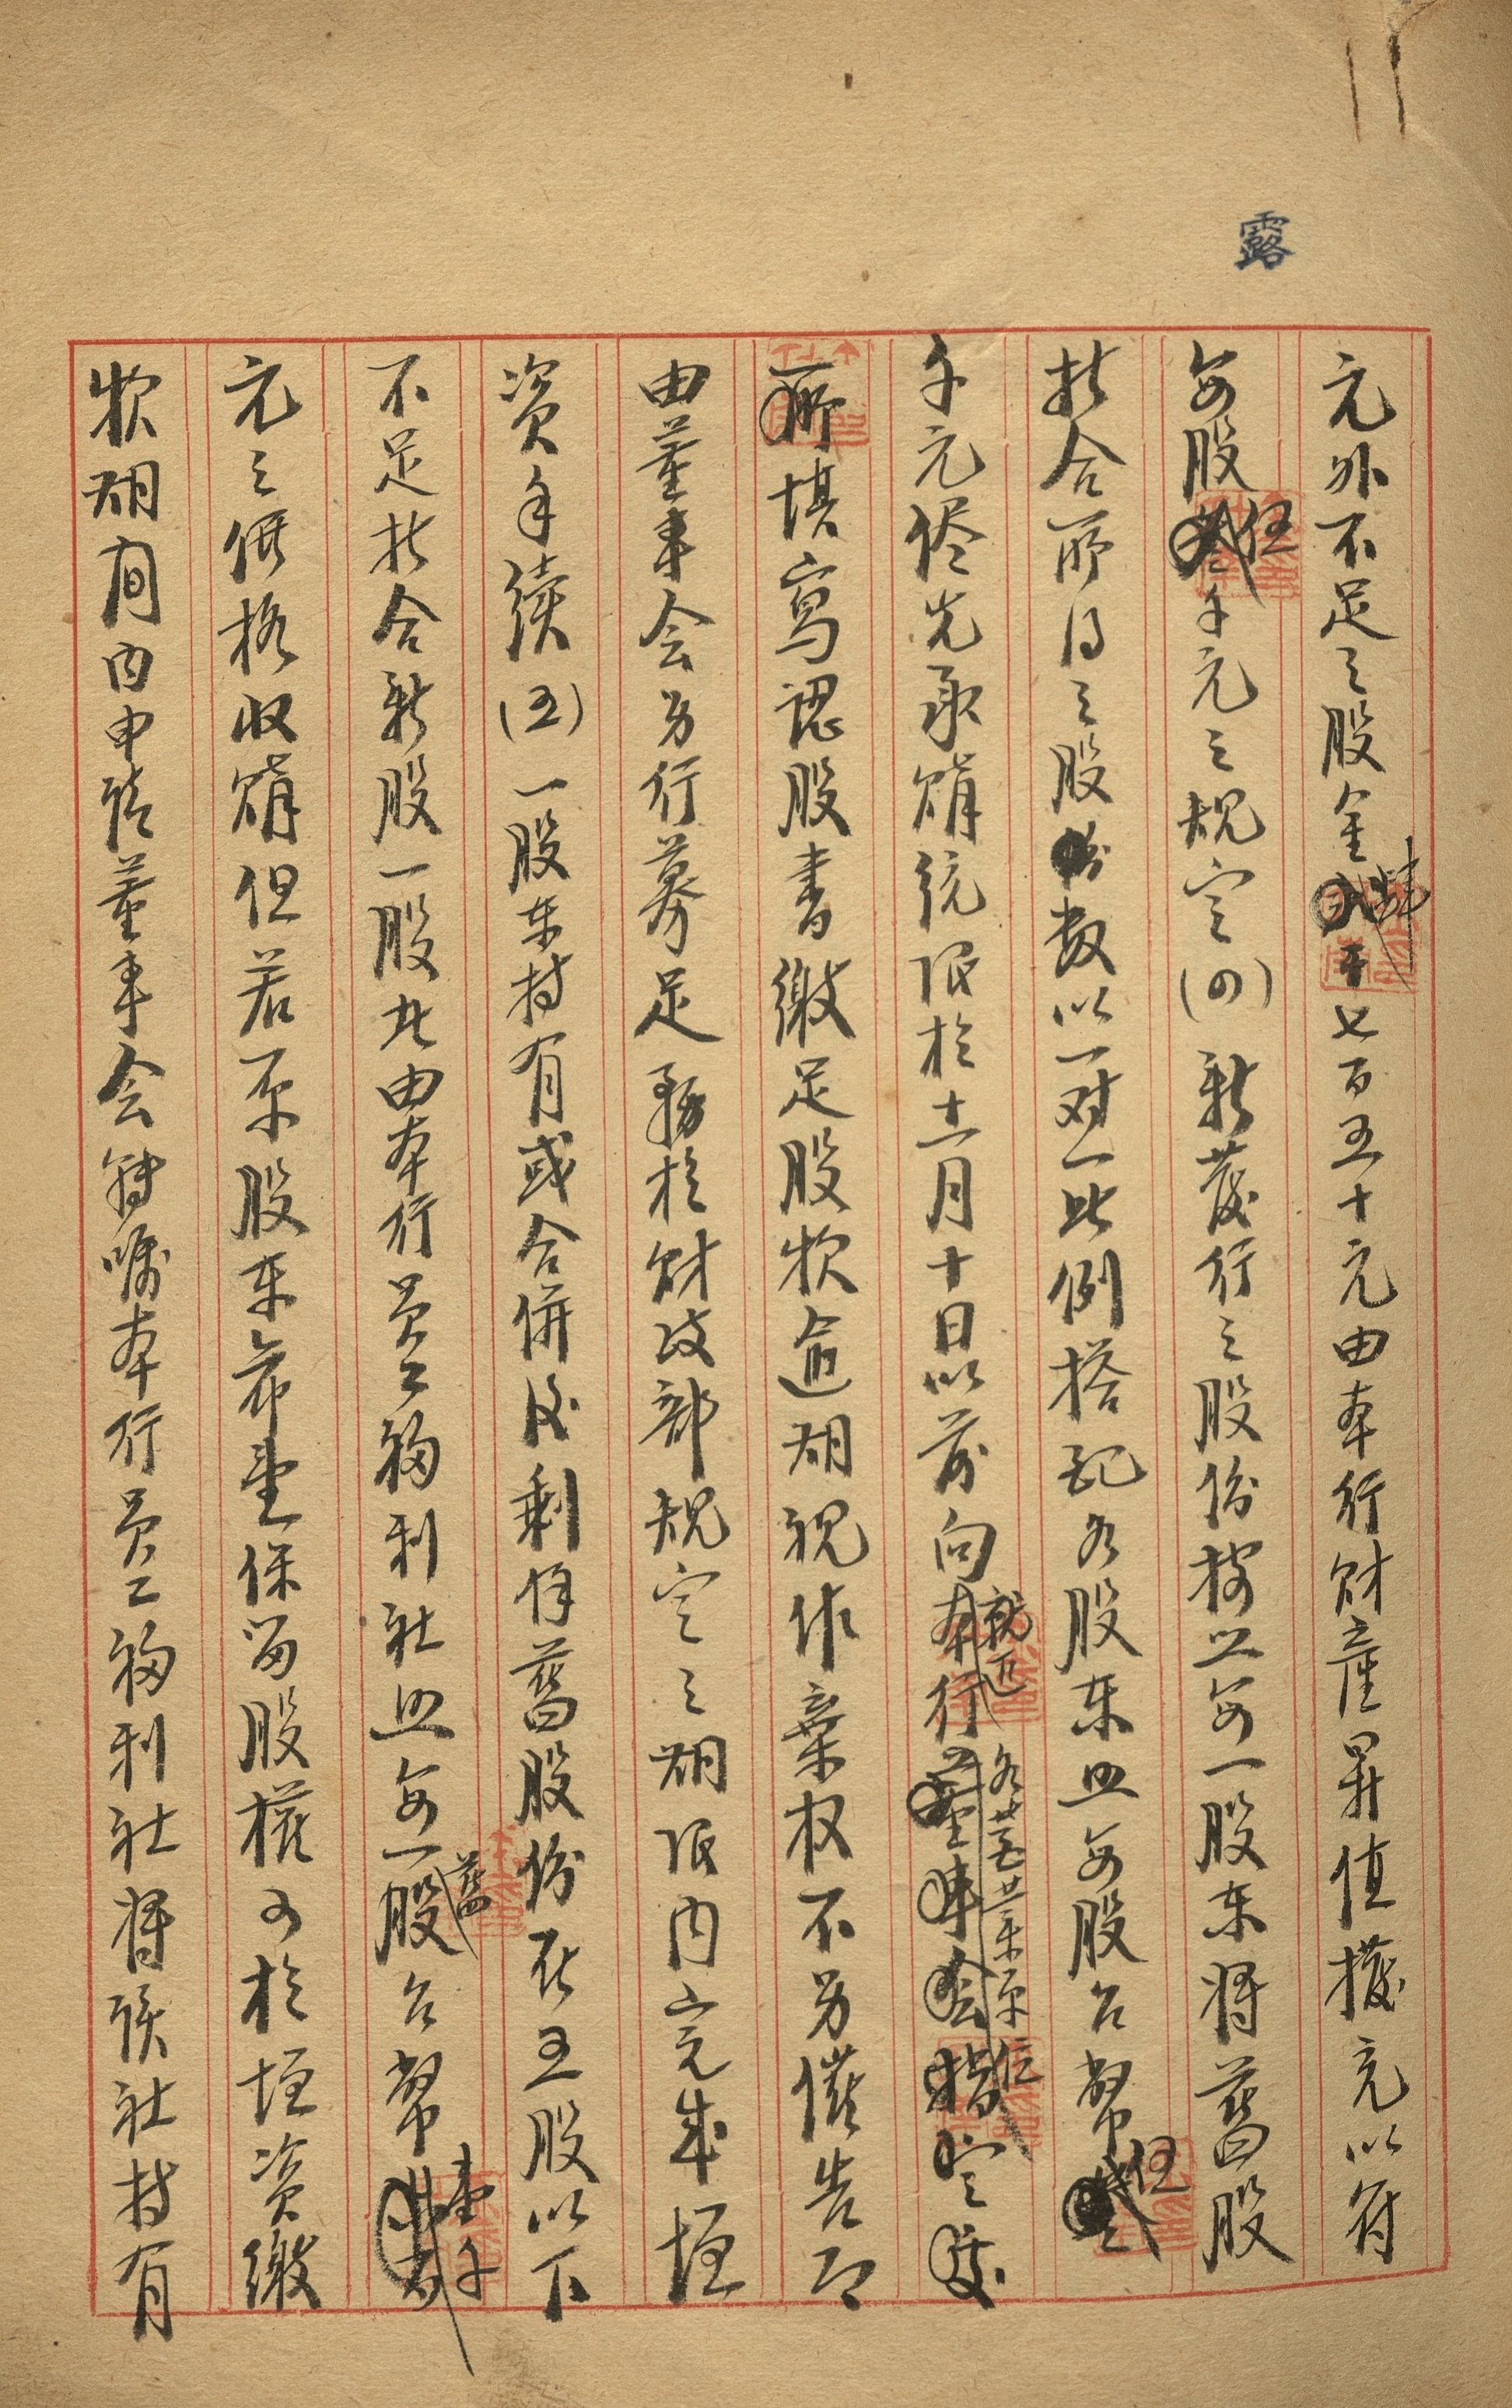 露
元外不足之股金肆千七百五十元由本行財產昇值撥充以符
每股伍千元之規定(四)新發行之股份按照每一股東將舊股
折合所得之股份数以一对一比例搭配各股東照每股台幣伍
千元儘先承購統限於十二月十日以前向就近各營業單位
填寫認股書繳足股款逾期視作棄权不另催告即
由董事会另行募足務於財政部規定之期限内完成增
資手續(五)一股东持有或合併後剩餘舊股份在五股以下
不足折合新股一股者由本行員工福利社照每一舊股台幣壹千
元之價格收購但若原股东希望保留股權可於增資繳
款期間内申請董事会轉囑本行員工福利社將該社持有